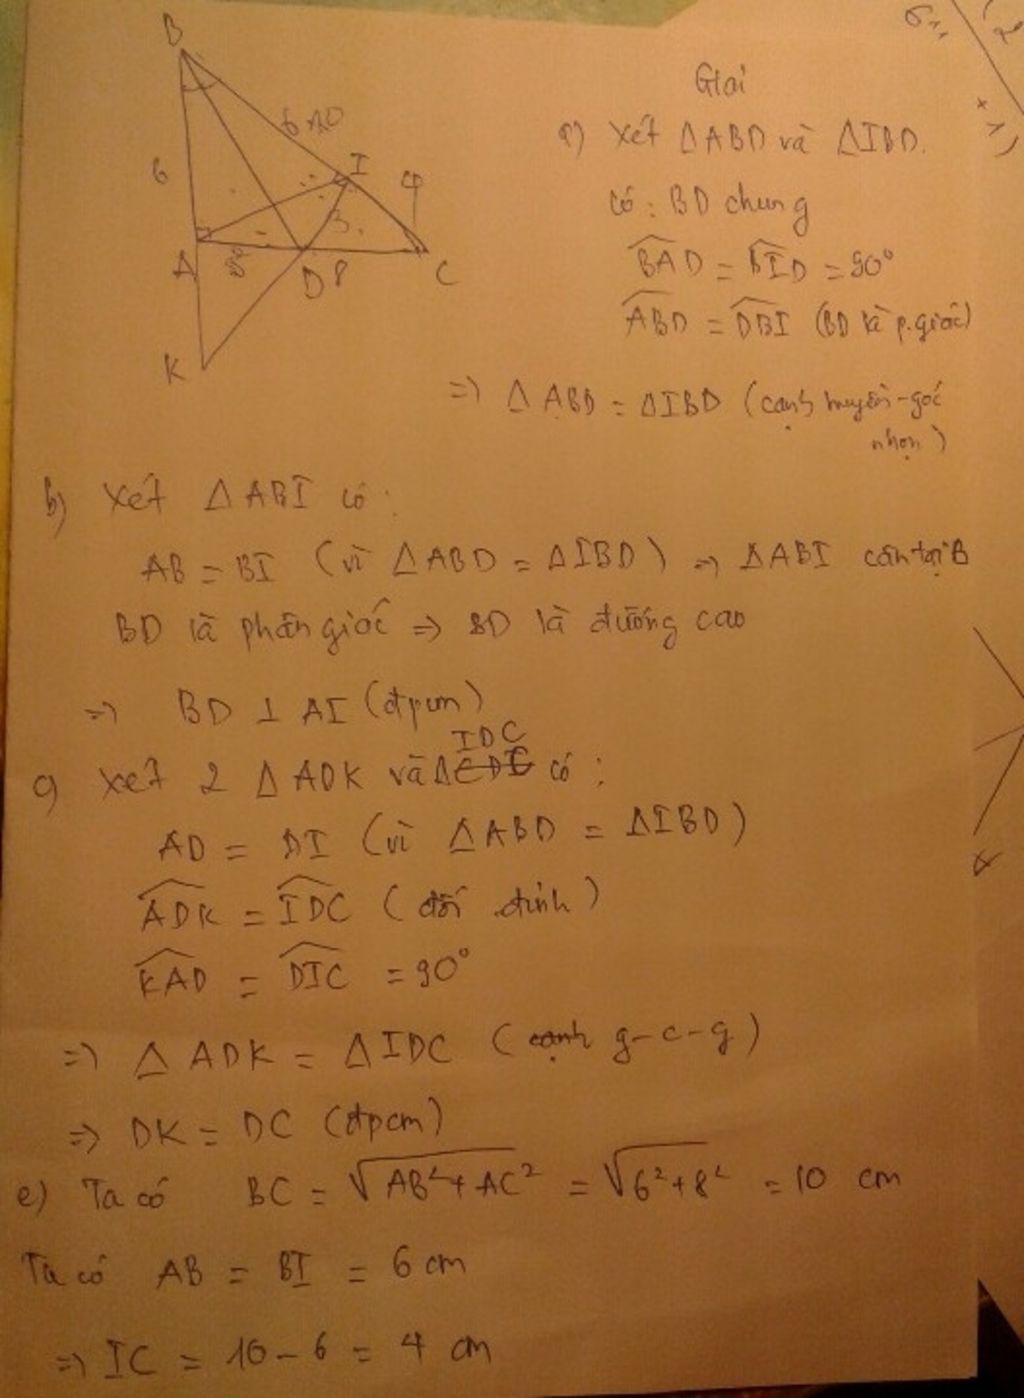 B
6 10
6
I
4
3
A
8
D 8
C
K
Giải
a) Xét ΔABD và ΔIBD.
có: BD chung
BAD = BID = 90°
ABD = DBI (BD là p.giác)
=> ΔABD = ΔIBD (cạnh huyền - góc
nhọn)
b) Xét ΔABI có:
AB = BI (vì ΔABD = ΔIBD) => ΔABI cân tại B
BD là phân giác => BD là đường cao
=> BD ⊥ AI (đpcm)
IDC
c) Xét 2 ΔADK và Δ có:
AD = DI (vì ΔABD = ΔIBD)
ADK = IDC (đối đỉnh)
KAD = DIC = 90°
=> ΔADK = ΔIDC (cạnh g-c-g)
=> DK = DC (đpcm)
e) Ta có BC = √AB²+AC² = √6²+8² = 10 cm
Ta có AB = BI = 6 cm
=> IC = 10 - 6 = 4 cm